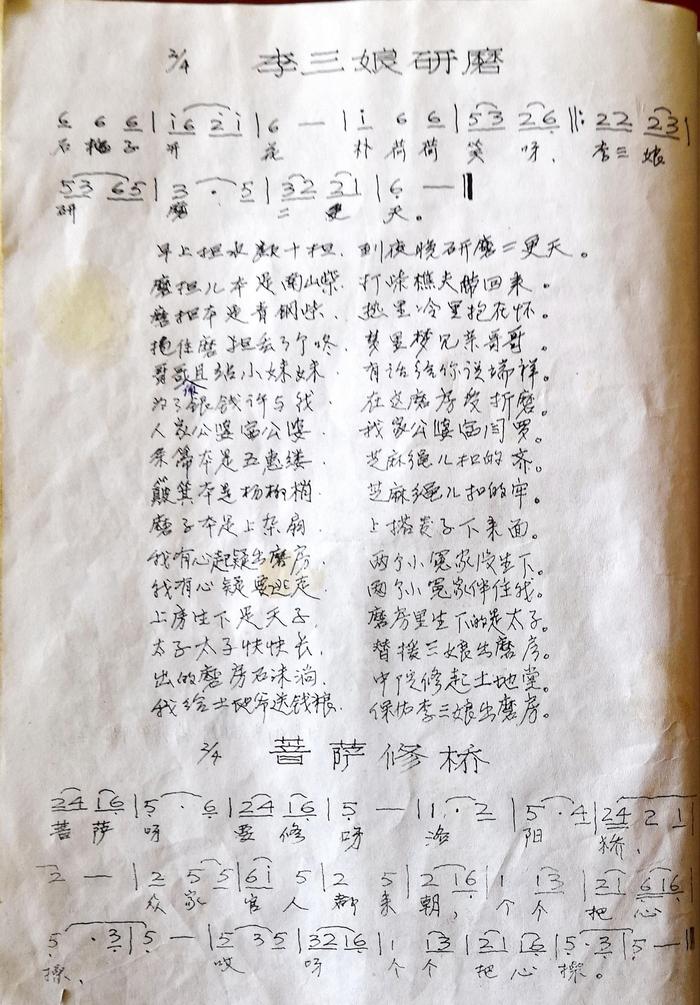 2/4 李三娘研磨
6 6 6 | i 6 2 i | 6 — | i 6 6 | 5 3 2 6 |: 2 2 2 3 |
石榴子 开 花 朴荷荷 笑 呀、 李三 娘
5 3 6 5 | 3 · 5 | 3 2 2 1 | 6 — ||
研 磨 二 更 天。
早上担水数十担、到夜晚研磨二更天。
磨担儿本是南山柴、打柴樵夫带回来。
磨担本是青钢柴、热里冷里抱在怀。
抱住磨担丢了个咚、梦里梦见亲哥哥。
哥哥且给小妹妹 有话给你说端祥。
为了银钱许与我 在这磨房受折磨。
人家公婆富公婆、我家公婆富阎罗。
本是五 芝麻绳儿扣的齐。
簸箕本是杨柳梢、芝麻绳儿扣的牢。
磨子本是上架扇 上搭麦子下来面。
我有心起疑出磨房、两个小冤家没生下。
我有心疑要逃走、两个小冤家伴住我。
上房生下是天子、磨房里生下的是太子。
太子太子快快长、替援三娘出磨房。
出的磨房石沫淌、中院修起土地堂。
我给土地爷送钱粮、保佑李三娘出磨房。
2/4 菩萨修桥
2 4 1 6 | 5 · 6 | 2 4 1 6 | 5 — | 1 · 2 | 5 · 4 | 2 4 2 1 |
菩 萨 呀 要 修 呀 洛 阳 桥，
2 — | 2 5 5 | 6 i 5 | 2 5 | 2 1 6 | 1 1 3 | 2 1 6 1 6 |
众 家 官 人 都 来 朝，个 个 把 心
5 · 3 | 5 — | 5 3 5 | 3 2 1 6 | 1 1 3 | 2 1 1 6 | 5 · 3 | 5 — ||
操、 哎 呀 个 个 把 心 操。